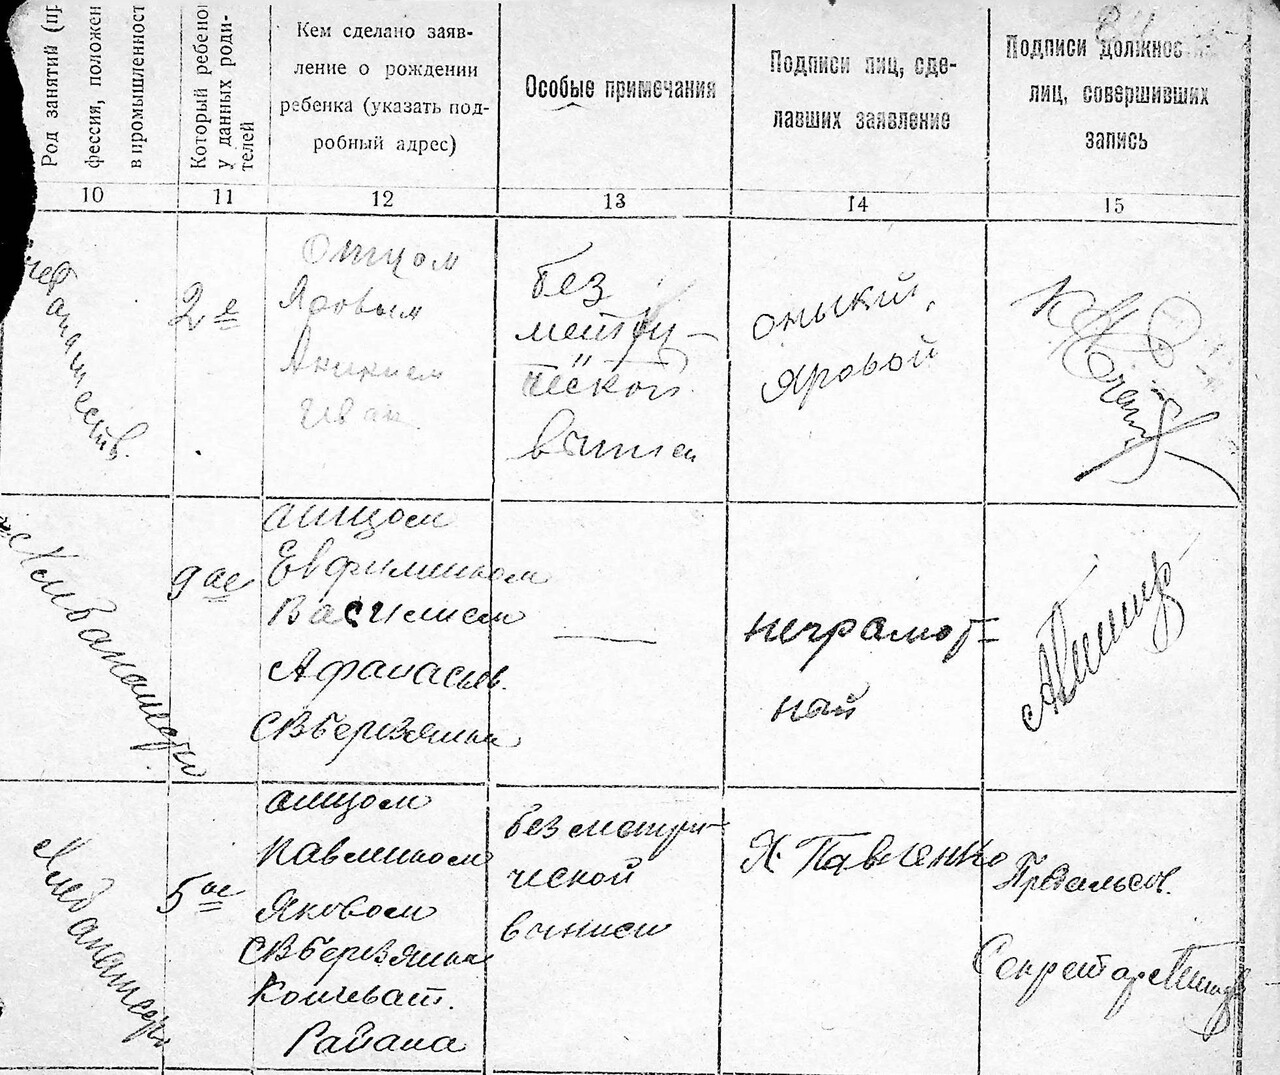 Род занятий (пр
фессия, положен
в промышленност
Который ребено
у данных роди-
телей
Кем сделано заяв-
ление о рождении
ребенка (указать под-
робный адрес)
Особые примечания
Подписи лиц, сде-
лавших заявление
Подписи должнос
лиц, совершивших
запись
10
11
12
13
14
15
2 е
Отцом
Яровым
Аникием
Иван
без
метри-
ческой
выписи
Яровой
9 ое
атцом
Васи лием
Афанасьев.
С Вберезянка
неграмот-
ный
Хлебапашец
5 ое
атцом
Павленком
Яковом
СВберезянка
Кончеват.
Района
без метри-
ческой
выписи
Я. Павленко
Предсельсов.
Секретар